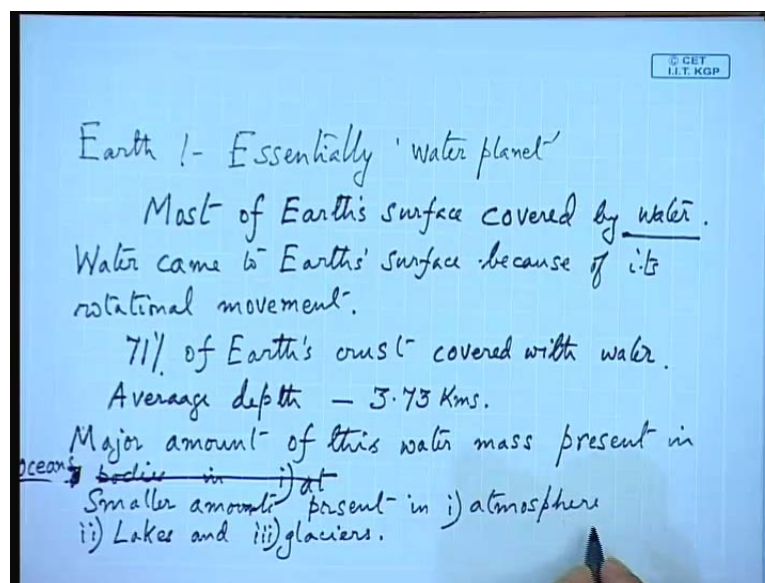 © CET
I.I.T. KGP
Earth :- Essentially 'water planet'
Most of Earth's surface covered by water.
Water came to Earths' surface because of its
rotational movement.
71% of Earth's crust covered with water.
Averaage depth – 3.73 Kms.
Major amount of this water mass present in
oceans bodies in i) at
Smaller amounts present in i) atmosphere
ii) Lakes and iii) glaciers.